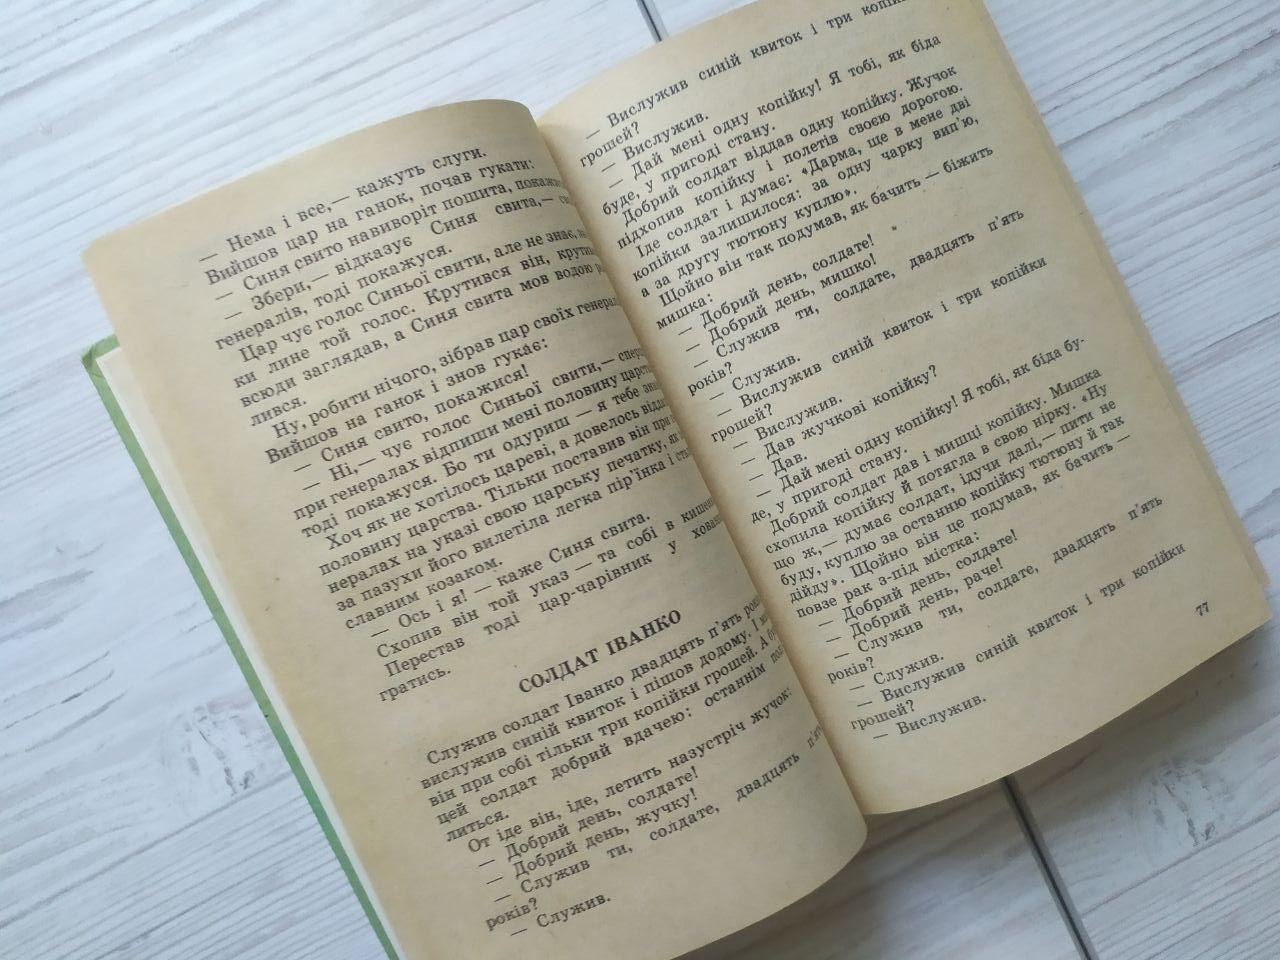 — Нема і все,— кажуть слуги.
Вийшов цар на ганок, почав гукати:
— Синя свито навиворіт пошита, покажися!
— Збери,— відказує Синя свита,—
генералів, тоді покажуся.
Цар чує голос Синьої свити, але не знає,
ки лине той голос. Крутився він,
всюди заглядав, а Синя свита мов водою
лився.
Ну, робити нічого, зібрав цар своїх
Вийшов на ганок і знов гукає:
— Синя свито, покажися!
— Ні,— чує голос Синьої свити,—
при генералах відпиши мені половину
тоді покажуся. Бо ти одуриш — я тебе
Хоч як не хотілось цареві, а довелось
половину царства. Тільки поставив він при
нералах на указі свою царську печатку, як
за пазухи його вилетіла легка пір'їнка і
славним козаком.
— Ось і я! — каже Синя свита.
Схопив він той указ — та собі в
Перестав тоді цар-чарівник у
гратись.
СОЛДАТ ІВАНКО
Служив солдат Іванко двадцять п'ять
вислужив синій квиток і пішов додому. І
він при собі тільки три копійки грошей. А
цей солдат добрий вдачею: останнім
литься.
От іде він, іде, летить назустріч жучок:
— Добрий день, солдате!
— Добрий день, жучку!
— Служив ти, солдате, двадцять п'ять
років?
— Служив.
— Вислужив синій квиток і три копійки
грошей?
— Вислужив.
— Дай мені одну копійку! Я тобі, як біда
буде, у пригоді стану.
Добрий солдат віддав одну копійку. Жучок
підхопив копійку і полетів своєю дорогою.
Іде солдат і думає: «Дарма, ще в мене дві
копійки залишилося: за одну чарку вип'ю,
а за другу тютюну куплю».
Щойно він так подумав, як бачить — біжить
мишка:
— Добрий день, солдате!
— Добрий день, мишко!
— Служив ти, солдате, двадцять п'ять
років?
— Служив.
— Вислужив синій квиток і три копійки
грошей?
— Вислужив.
— Дав жучкові копійку?
— Дав.
— Дай мені одну копійку! Я тобі, як біда бу-
де, у пригоді стану.
Добрий солдат дав і мишці копійку. Мишка
схопила копійку й потягла в свою нірку. «Ну
що ж,— думає солдат, ідучи далі,— пити не
буду, куплю за останню копійку тютюну й так
дійду». Щойно він це подумав, як бачить —
повзе рак з-під містка:
— Добрий день, солдате!
— Добрий день, раче!
— Служив ти, солдате, двадцять п'ять
років?
— Служив.
— Вислужив синій квиток і три копійки
грошей?
— Вислужив.
77